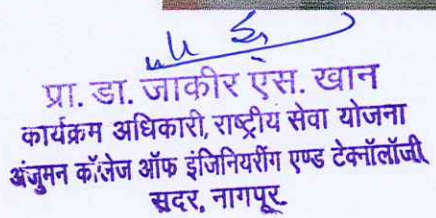 प्रा. डा. जाकीर एस. खान
कार्यक्रम अधिकारी, राष्ट्रीय सेवा योजना
अंजुमन कॉलेज ऑफ इंजिनियरींग एण्ड टेक्नॉलॉजी
सदर, नागपूर